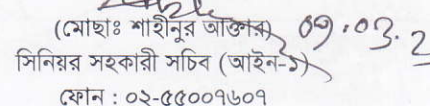 (মোছাঃ শাহীনুর আক্তার) ০৭.০৩.২
সিনিয়র সহকারী সচিব (আইন-১)
ফোন : ০২-৫৫০০৭৬০৭